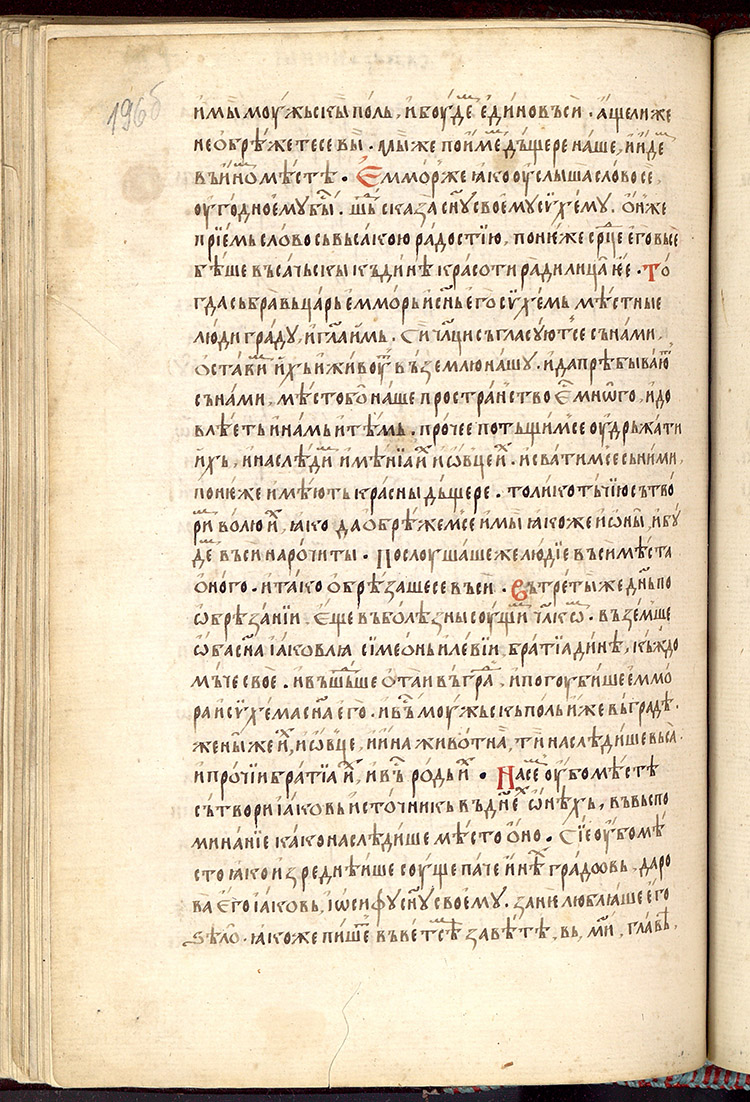 196б
имы моужьскы поль, и боуде единовъси. аще ли же
не обрѣжетесе вы. мы же поиме дъщере наше, и иде
въ ино мѣсте. Емморже iако оуслыша слово се,
оугодно ему бы. шь сказа сну своему сѵхему. он же
прїемь слово сь вьсакою радостїю, понюже срце его вьсе
бѣше въсачьскы къ динѣ красоти ради лица нѥе. То
гда събравь царь емморь и снь его сѵхемь мѣстные
люди граду, и гла имь. Си члци съгласуютсе сънами,
остави ихь и живот въ землю нашу. и да прѣбывают
сънами, мѣсто бо наше пространство ѥ мнѡго, и до
влѣеть и намь и тѣмь. прочее потъщимсе оудрьжати
ихь, и наслѣди имѣнїа и и ѡвце и. и сватимсе сьними,
понюже имѣють красны дъщере. толико тъчїю сътво
ри волю и, iако да обрѣжемсе и мы iако же и ѡны, и бу
де въси нарочити. Послоушаше же людїе въси мѣста
оного. и тако обрѣзаше се въси. Въ третыже днь по
ѡбрѣзанїи. Еще въ болѣзны соущи члкѡ. въземше
ѡба сна iаковлѧ сїмеонь и левїи, братїа динѣ, къждо
мьче свое. и въшьше отаи въ гра, и погоубише еммо
ра и сѵхема сна его. и въ моужьскь поль иже въ градѣ.
жены же и, и ѡвце, и ина животна, ти наслѣдише вьса.
и прочїи братїа и, и въ родь и. На се оубо мѣсте
сътвори iаковь источникь въ дне ѡнѣхь, въ въспо
минанїе како наслѣдише мѣсто оно. Сїе оубо мѣ
сто iако изреднѣише соуще паче инѣ градовь, даро
ва его iаковь, iѡсифу сну своему. зание люблiаше его
ѕѣло. iакоже пише въ ветсѣ завѣтѣ, вь, ми, главѣ,